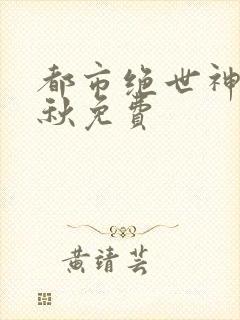 都市绝世神
秋免费
黄靖芸